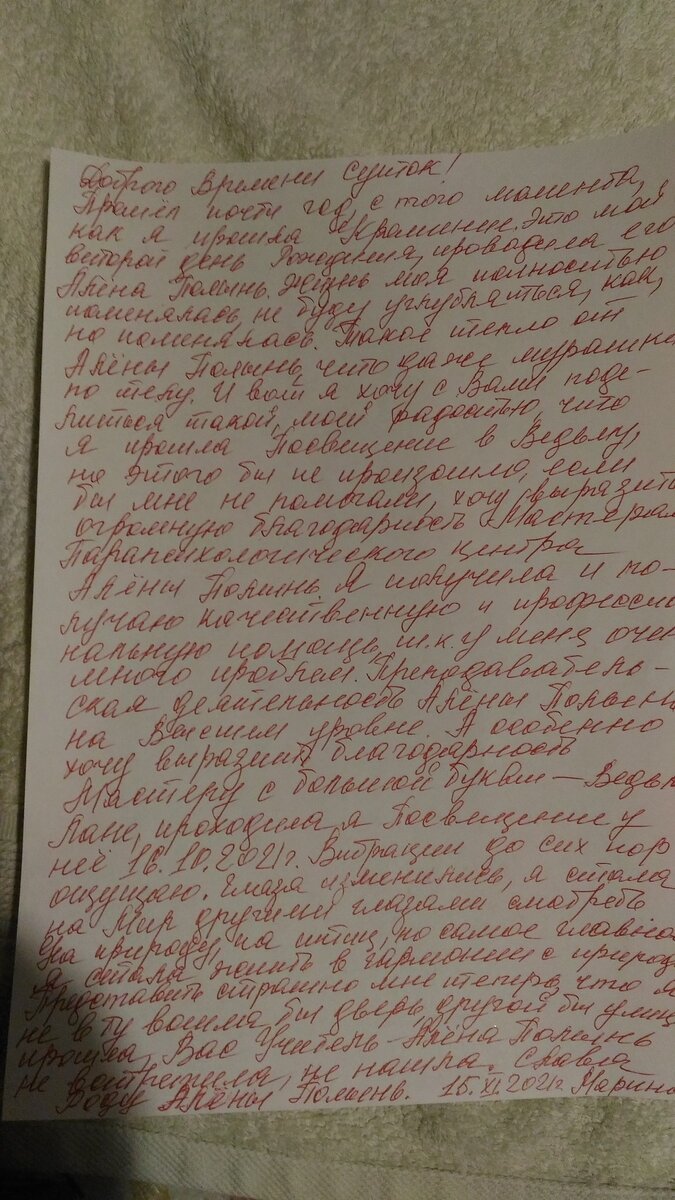 Доброго Времени Суток!
Прошёл почти год, с того момента,
как я прошла Крашение. Это мой
второй день Рождения, проводила его
Алёна Полынь. Жизнь моя полностью
поменялась, не буду углубляться, как,
но поменялась. Такое тепло от
Алёны Полынь, что даже мурашки
по телу. И вот я хочу с Вами поде-
литься такой, моей радостью, что
я прошла Посвещение в Ведьму,
но этого бы не произошло, если
бы мне не помогали, хочу выразить
огромную благодарность Мастерам
Парапсихологического центра
Алёны Полынь. Я получила и по-
лучаю качественную и професси
нальную помощь, т.к. у меня очен
много проблем. Преподаватель-
ская деятельность Алёны Полынь
на Высшем уровне. А особенно
хочу выразить благодарность
Мастеру с большой буквы — Ведьм
Лане, проходила я Посвещение у
неё 16.10.2021г. Вибрации до сих пор
ощущаю. Глаза изменились, я стала
на Мир другими глазами смотреть
На природу, на птиц, но самое главное
я стала жить в гармонии с природ
Представить страшно мне теперь, что я
не в ту вошла бы дверь, другой бы улиц
прошла, Вас Учитель - Алёна Полынь
не встретила, не нашла. Слава
Роду Алёны Полынь. 15.XI.2021г Марина